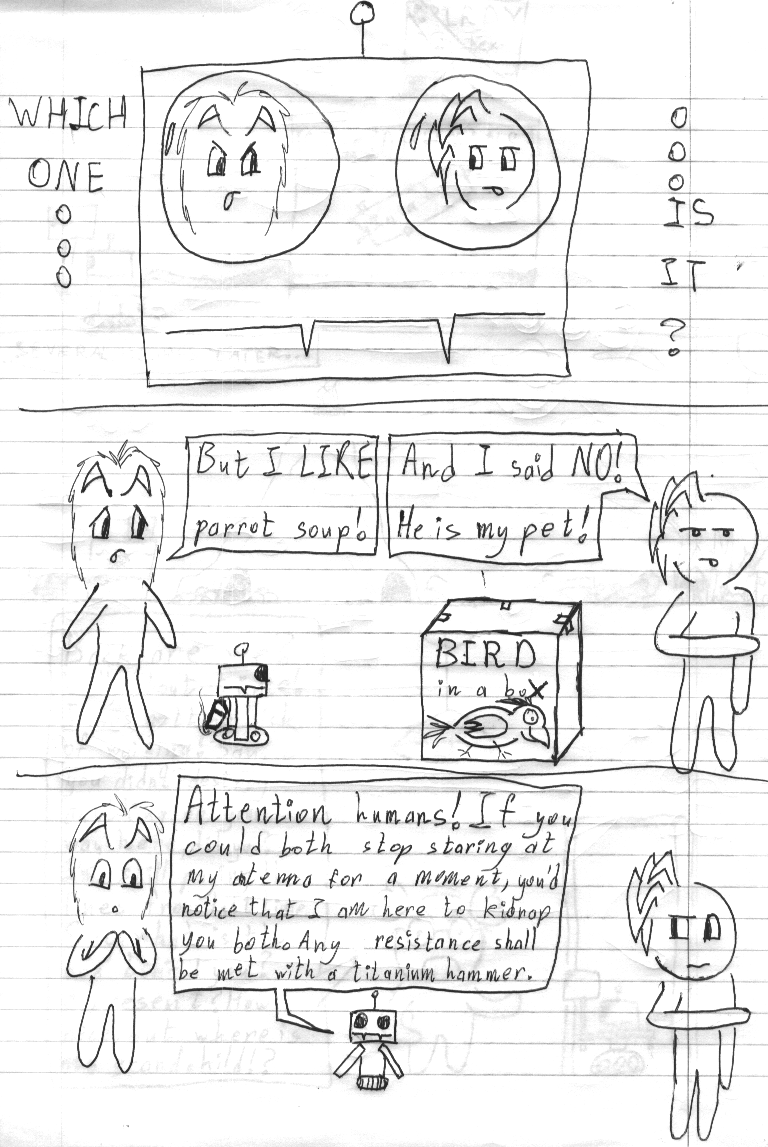 WHICH
ONE
IS
IT
?
But I LIKE
parrot soup!
And I said NO!
He is my pet!
BIRD
in a box
Attention humans! If you
could both stop staring at
my atenna for a moment, you'd
notice that I am here to kidnap
you both. Any resistance shall
be met with a titanium hammer.